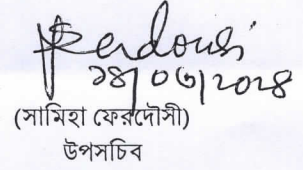 Ferdousi
১৪/০৩/২০২৪
(সামিহা ফেরদৌসী)
উপসচিব